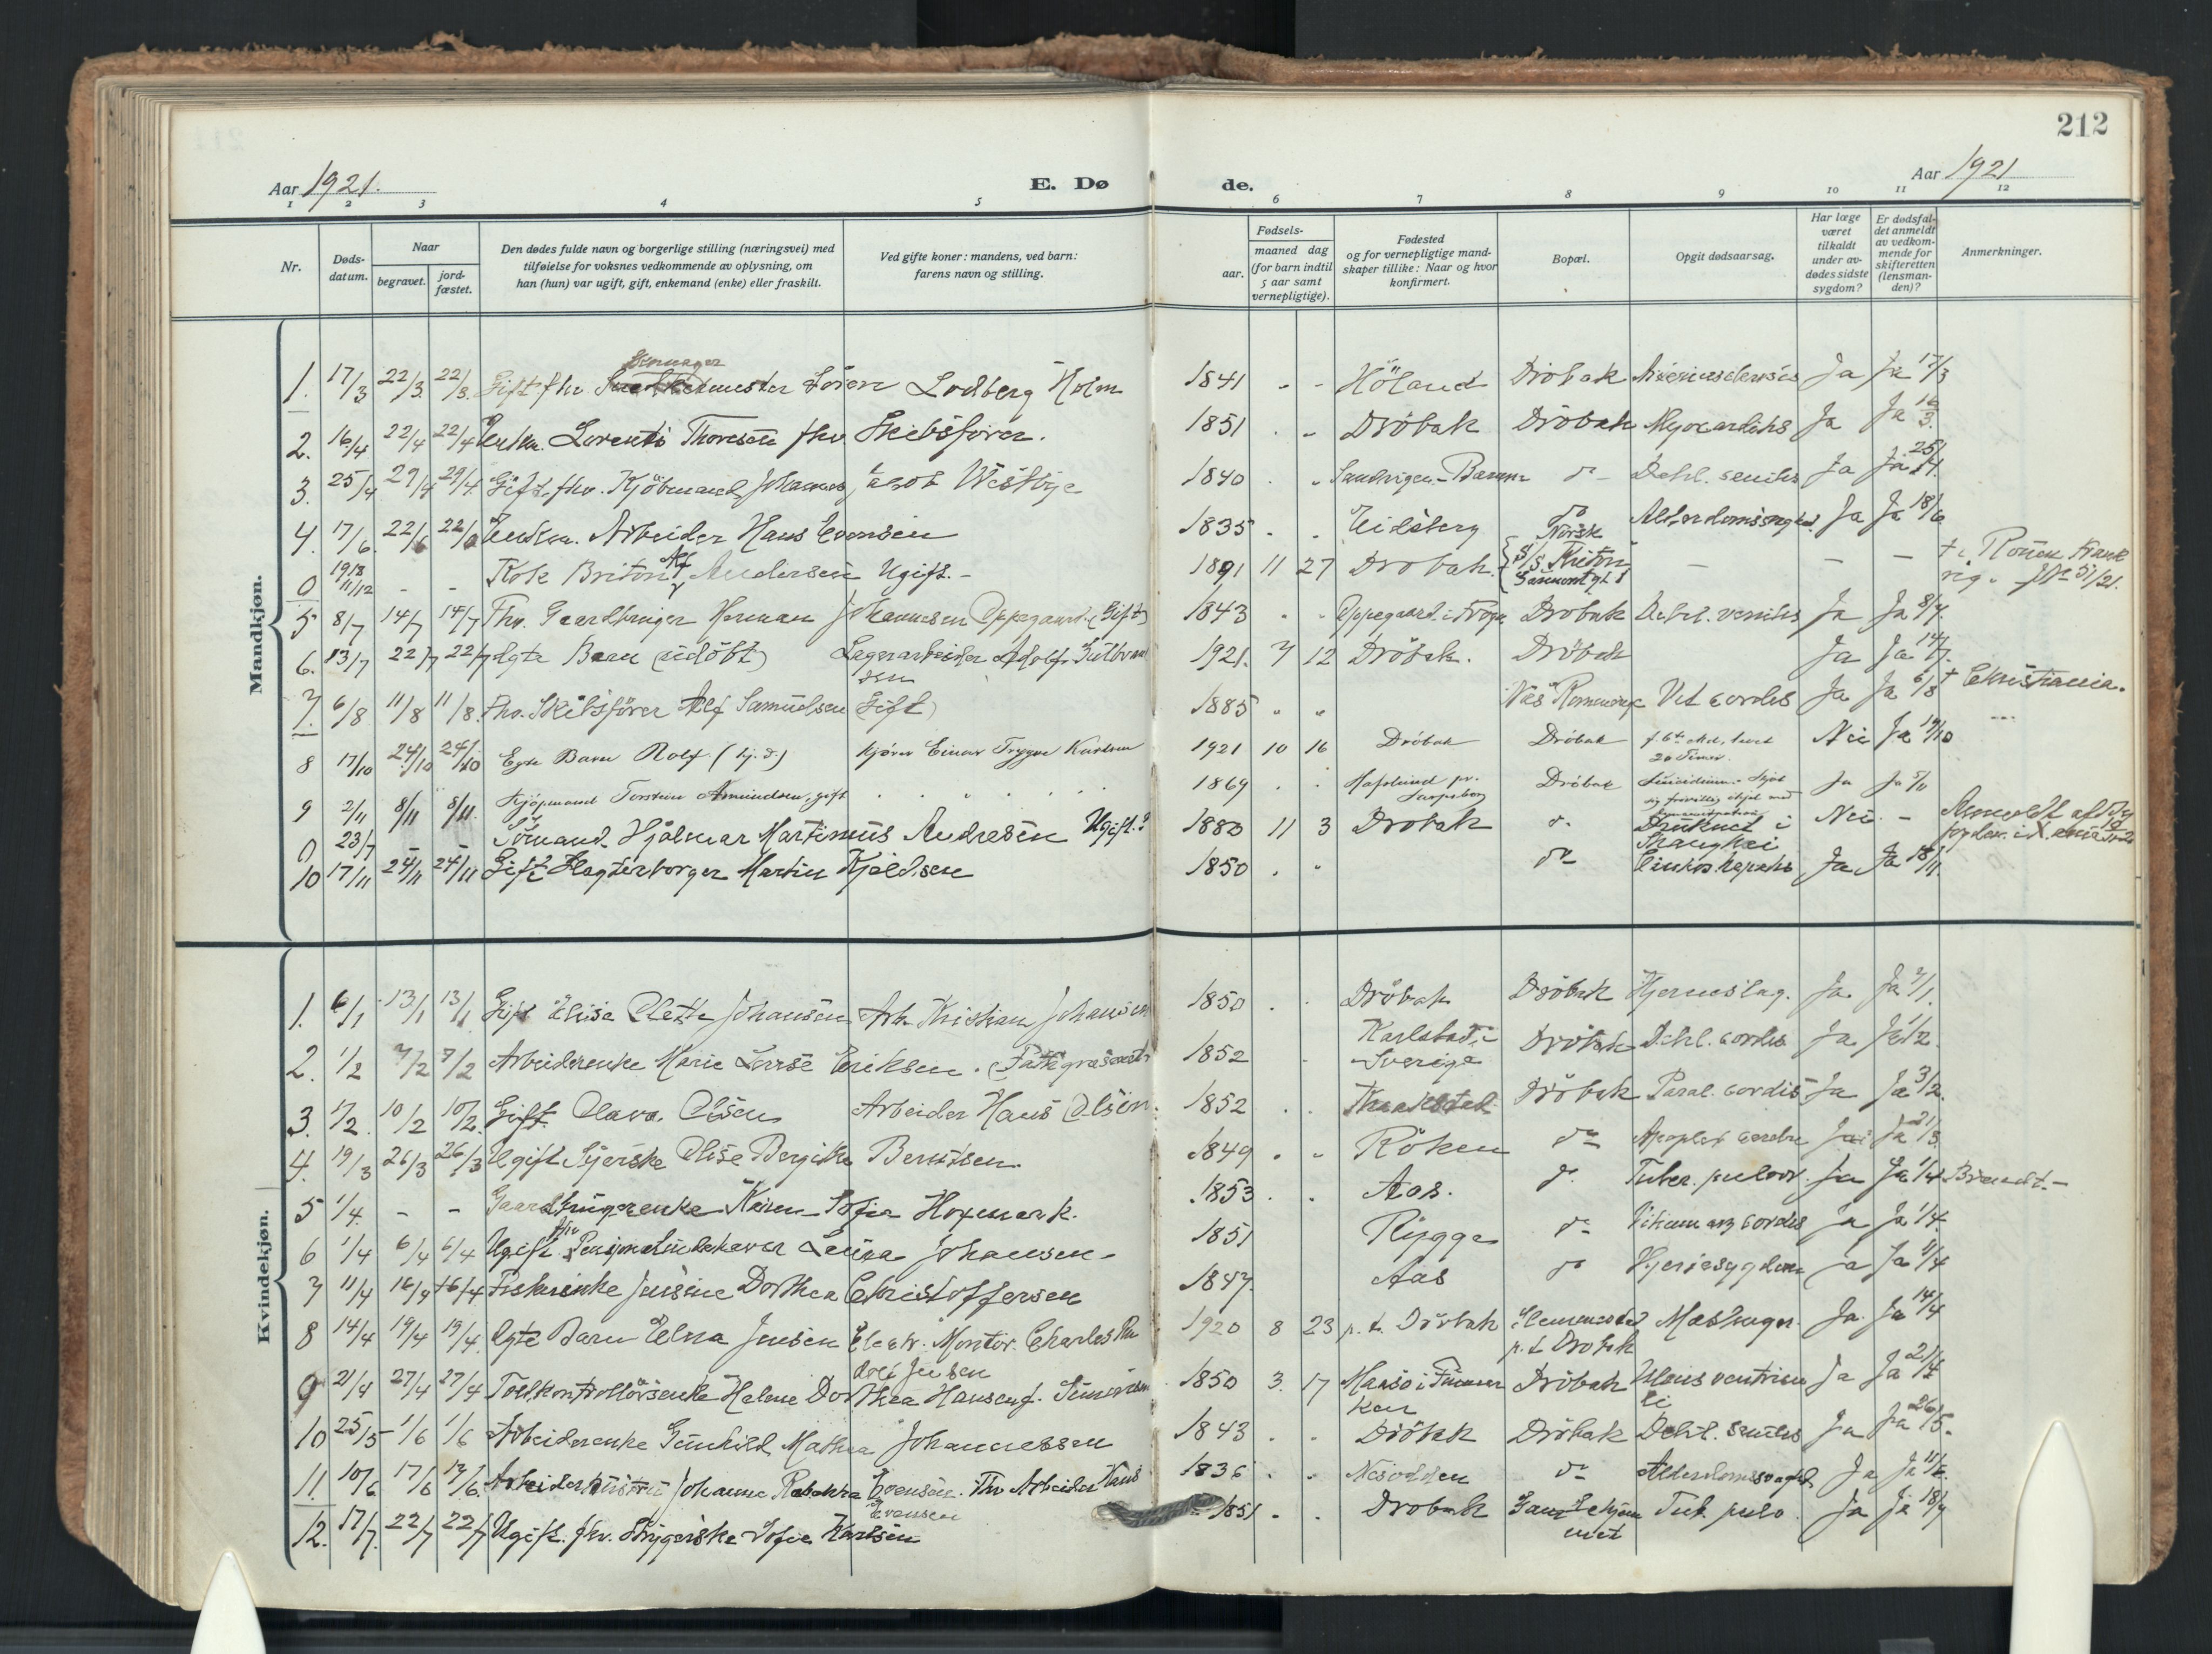 212
Aar 1921.
E. Døde.
Aar 1921
1 2 3 4 5 6 7 8 9 10 11 12
Nr.
Døds-datum.
Naar
begravet.
jord-fæstet.
Den dødes fulde navn og borgerlige stilling (næringsvei) med
tilføielse for voksnes vedkommende av oplysning, om
han (hun) var ugift, gift, enkemand (enke) eller fraskilt.
Ved gifte koner: mandens, ved barn:
farens navn og stilling.
Fødsels-
aar.
maaned dag
(for barn indtil
5 aar samt
vernepligtige).
Fødested
og for vernepligtige mand-
skaper tillike: Naar og hvor
konfirmert.
Bopæl.
Opgit dødsaarsag.
Har læge
været
tilkaldt
under av-
dødes sidste
sygdom?
Er dødsfal-
det anmeldt
av vedkom-
mende for
skifteretten
(lensman-
den)?
Anmerkninger.
Mandkjøn.
1. 17/3 22/3 22/3. Gift fhv. Sören Lodberg Holm 1841 - - Höland Dröbak Ja Ja 17/3
2. 16/4 22/4 22/4 Enkm. Lorentz Thoresen fhv. Skibsförer. 1851 . - Dröbak Dröbak Myocarditis Ja Ja
3. 25/4 29/4 29/4. Gift. fhv. Kjöbmand Johannes Jacob Westbye 1840 . - do - Debil. senilis Ja Ja 25/4.
4. 17/6. 22/6 22/6 Enkem. Arbeider Hans Evensen 1835 . . Eidsberg do Alderdomssvaghed. Ja Ja 18/6
0 1918 11/12 - - Kok Briton Alf Andersen Ugift.- 1891 11 27 Drobak. Norsk S/S - - - + i Rouen Frank
rig. 51/21.
5 8/7 14/7 14/7 Fhv. Gaardbruger Herman Johannesen Oppegaard. (Gift) 1843 . . Oppegaard i Drobak Debil. senilis Ja Ja 8/7.
6. 13/7 22/7 22/7 Egte Barn (udöbt) Lagerarbeider Adolf
sen
1921. 7 12 Dröbak. Dröbak Ja Ja 14/7.
7. 6/8 11/8 11/8. Fhv. Skibsförer Alf Samuelsen (Gift) 1885 " " Nes Romerike Vit. cordis Ja Ja 6/8 + Christiania.
8 17/10 24/10 24/10 Egte Barn Rolf (hj. d) Einar Trygve 1921 10 16 Dröbak Dröbak
20 Timer.
Nei Ja 19/10
9 2/11 8/11 8/11. Kjøpmand Torstein Amundsen, gift 1869 . . Hafslund pr.
Sarpsborg
Dröbak Suicidium. Ja Ja 5/11
0 23/7 - - Sömand. Hjalmar Martinius Andresen Ugift.? 1880 11 3 Drobak do Druknet i
Shanghai
Nei -
10 17/11 24/11 24/11 Gift Slagterborger Martin Kjeldsen 1850 . " do Ja Ja 18/11.
Kvindekjøn.
1. 6/1 13/1 13/1 Gift Elise Olette Johansen Arb. Kristian Johansen 1850 . . Dröbak Dröbak Hjerneslag. Ja Ja 7/1.
2. 1/2 7/2 7/2 Arbeiderenke Marie Lovise Eriksen. 1852 . Karlstad i
Sverige
Dröbak Debil. cordis Ja Ja 1/2.
3. 1/2. 10/2 10/2. Gift. Olava Olsen Arbeider Hans Olsen. 1852 . . Dröbak Paral. cordis Ja Ja 3/2.
4. 19/3 26/3 26/3 Ugift Syerske Elise Bergithe Berntsen. 1849 . " Röken do Apoplex cerebri Ja Ja 21/3
5 1/4. - - Gaardbrugerenke Karen Sofie Hoxmark. 1853 . . Aas. do Tuber. pulm. Ja Ja 1/4 Brændt.-
6 1/4 6/4 6/4 Ugift. fhv Laura Johansen - 1851 Rygge do Vitium org cordis Ja Ja 1/4.
7 11/4 16/4 16/4 Fiskerenke Jensine Dorthea Christoffersen 1847. Aas do Hjertesygdom Ja Ja 11/4
8 14/4 19/4 19/4. Egte Barn Elna Jensen Electr. Montör. Charles Ru
dolf Jensen
1920 8 23 p. t. Dröbak
p. t. Drobak
Mæslinger. Ja. Ja 14/4
9 21/4 27/4 27/4 Toldkontrollörsenke Helene Dorthea Hansen f. 1850 3. 17 Maasö i Finmar
ken
Dröbak Ulcus ventricu
li
Ja Ja 21/4
10 25/5 1/6 1/6 Arbeiderenke Gunhild Mathea Johannessen 1843 . . Dröbak Dröbak Debil. senilis Ja Ja 26/5.
11. 10/6 17/6 17/6. Arbeiderhustru Johanne Rebekka Evensen. Fhv Arbeider Hans
Evensen
1836 . . Nesodden do Alderdomssvaghed Ja Ja 11/6.
12. 17/7. 22/7 22/7 Ugift. fhv. Strygerske Sofie Karlsen 1851 . . Drobak Gamlehjem
met
Tub. pulm. Ja Ja 18/7